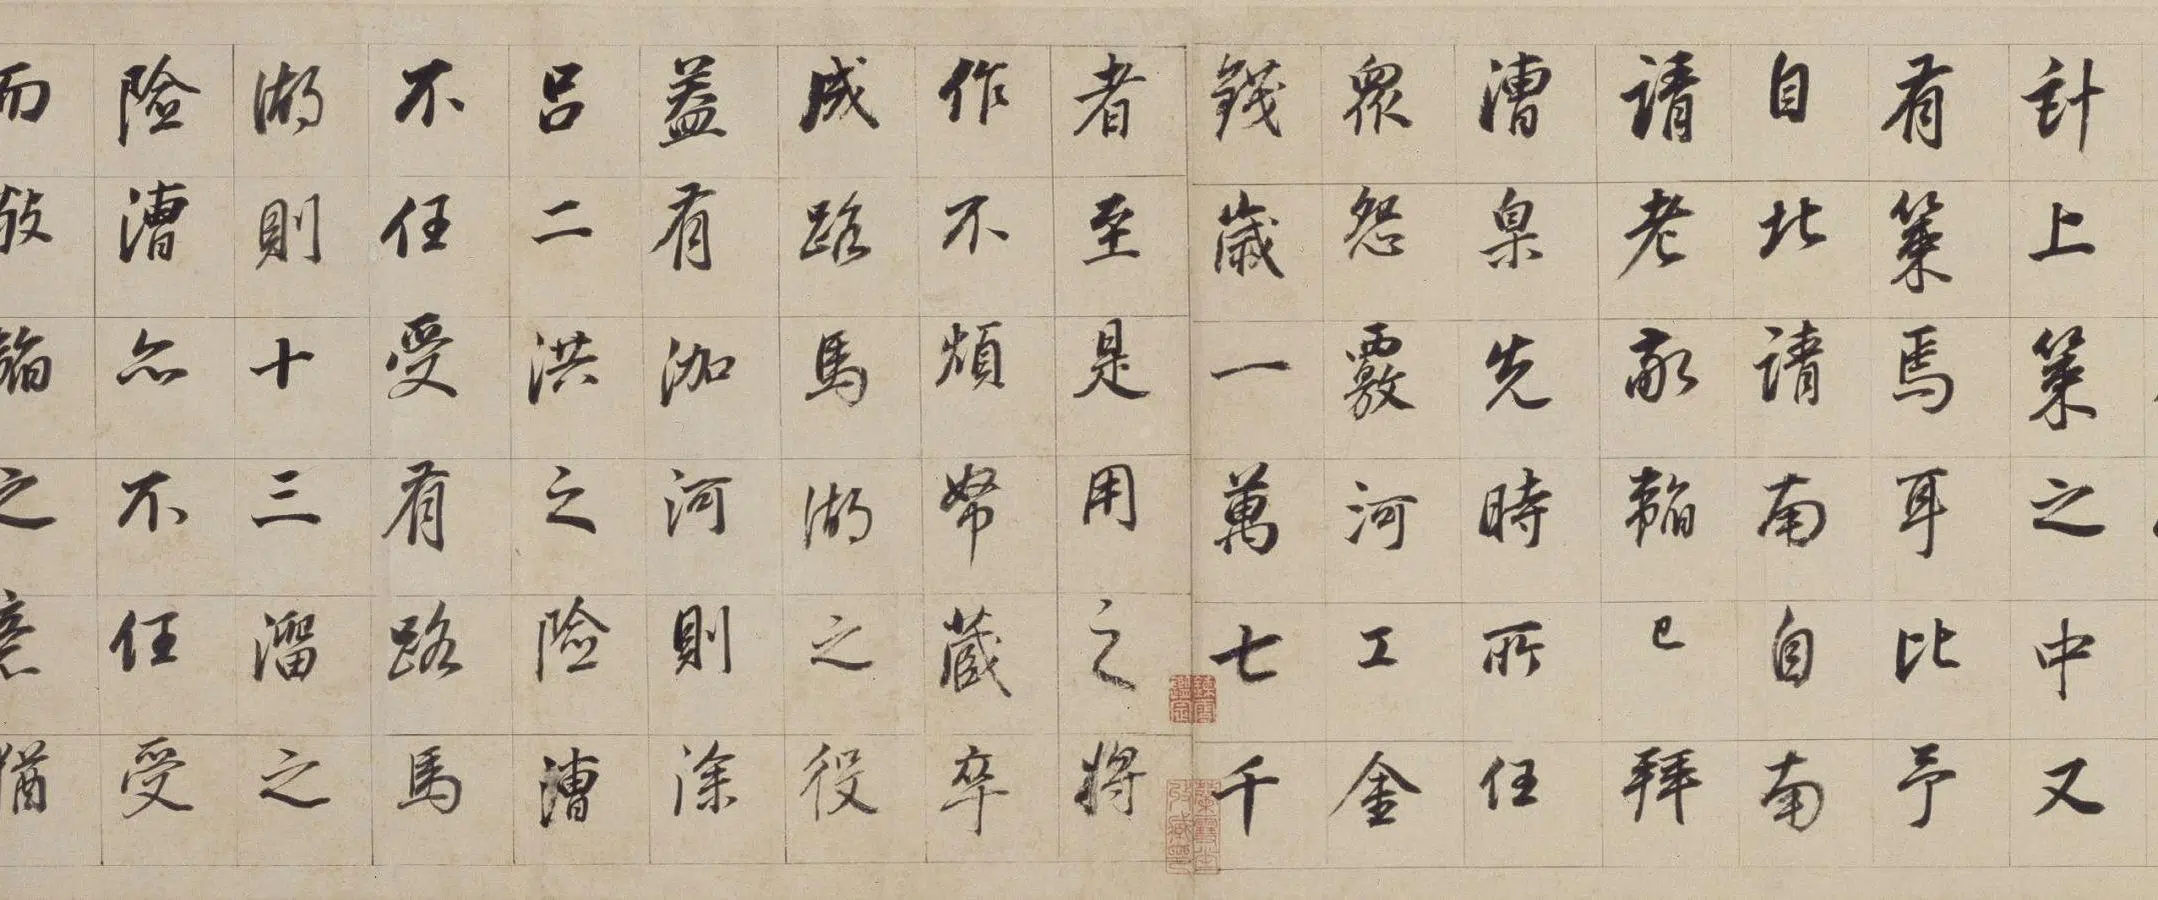 計上策之中又
有策焉耳比予
自北請南自南
請老敬韜已拜
漕臬先時所任
衆怨覈河工金
錢歲一萬七千
者至是用之將
作不煩帑藏卒
成路馬湖之役
蓋有泇河則涂
呂二洪之險漕
不任受有路馬
湖則十三溜之
險漕亦不任受
而敬韜之意猶